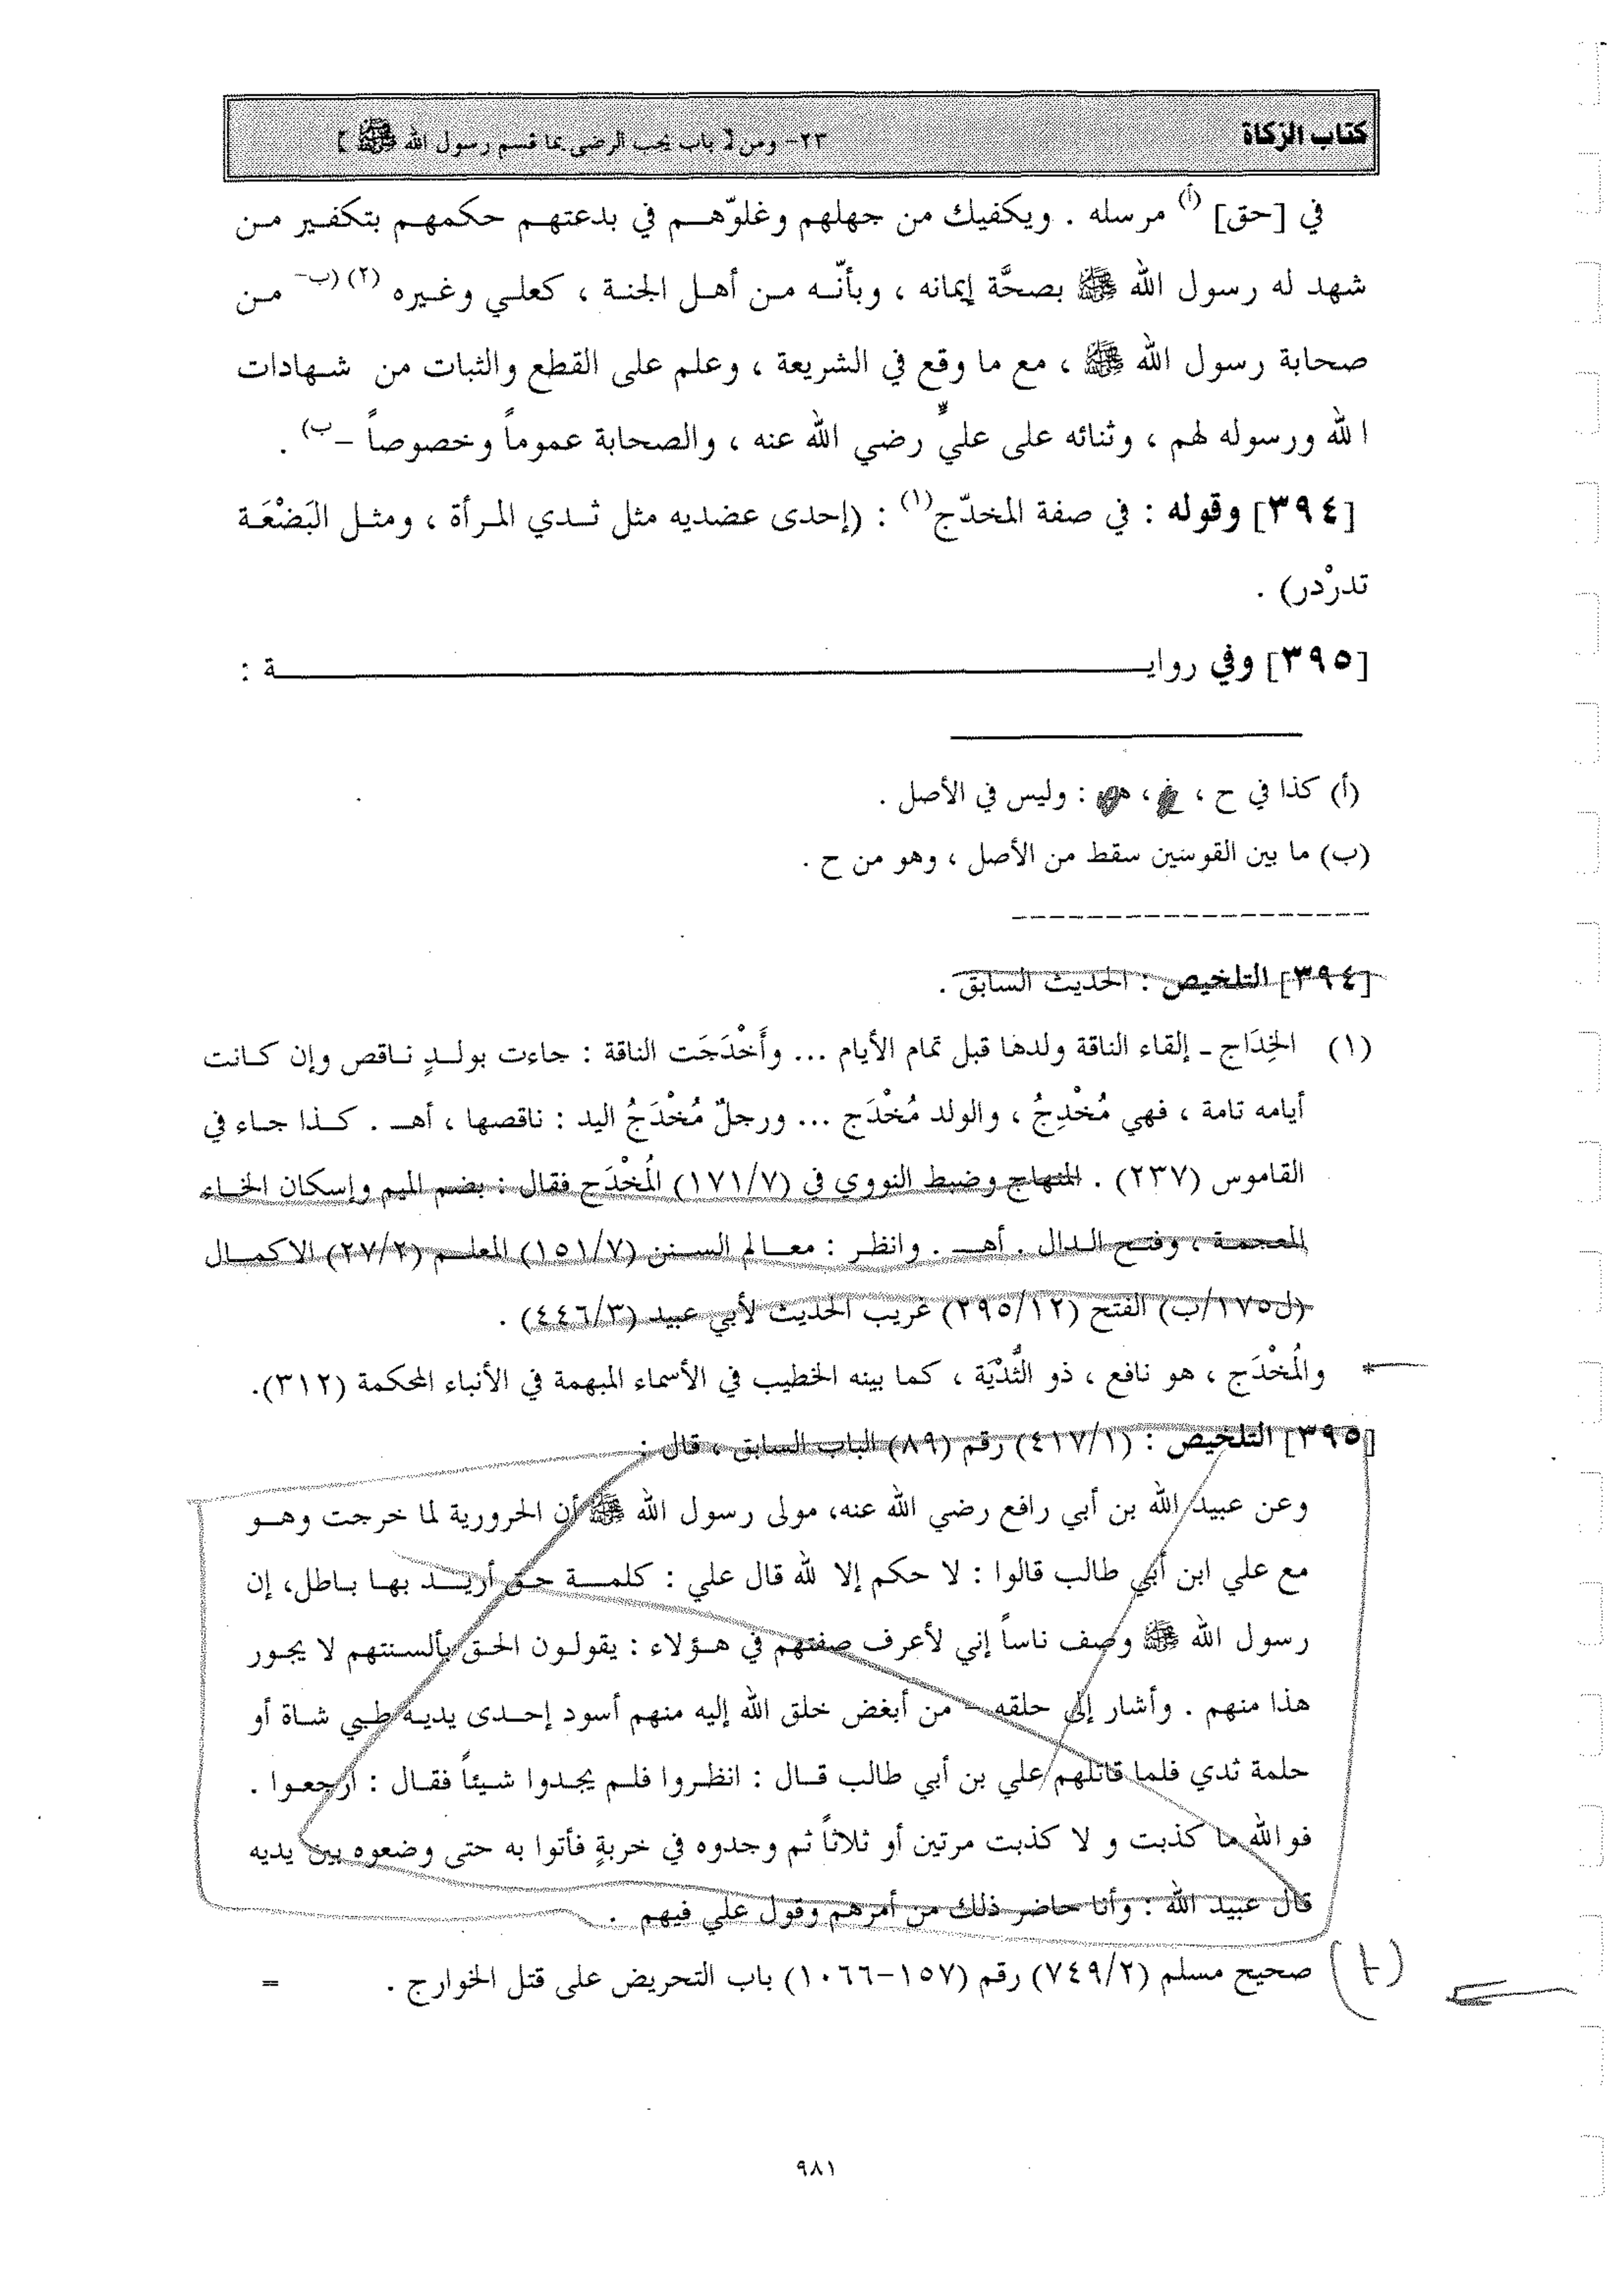 كتاب الزكاة
٢٣- ومن [ باب يجب الرضى بما قسم رسول الله ﷺ ]
في [حق] (أ) مرسله . ويكفيك من جهلهم وغلوّهـم في بدعتهم حكمهم بتكفير من
شهد له رسول الله ﷺ بصحَّة إيمانه ، وبأنّه من أهل الجنة ، كعلي وغيره (٢) (ب- من
صحابة رسول الله ﷺ ، مع ما وقع في الشريعة ، وعلم على القطع والثبات من شهادات
الله ورسوله لهم ، وثنائه على عليٍّ رضي الله عنه ، والصحابة عموماً وخصوصاً -ب) .
[٣٩٤] وقوله : في صفة المخدّج(١) : (إحدى عضديه مثل ثدي المرأة ، ومثل البَضْعَة
تدرْدر) .
[٣٩٥] وفي روايـــــة :
(أ) كذا في ح ، ، : وليس في الأصل .
(ب) ما بين القوسين سقط من الأصل ، وهو من ح .
[٣٩٤] التلخيص : الحديث السابق .
(١) الخِدَاج - إلقاء الناقة ولدها قبل تمام الأيام ... وأَخْدَجَت الناقة : جاءت بولدٍ ناقص وإن كانت
أيامه تامة ، فهي مُخْدِجُ ، والولد مُخْدَج ... ورجلٌ مُخْدَجُ اليد : ناقصها ، أهـ . كذا جاء في
القاموس (٢٣٧) . المنهاج وضبط النووي في (١٧١/٧) المُخْدَج فقال : بضم الميم وإسكان الخاء
المعجمة ، وفتح الدال . أهـ . وانظر : معالم السنن (١٥١/٧) المعلم (٢٧/٢) الاكمال
(ل١٧٥/ب) الفتح (٢٩٥/١٢) غريب الحديث لأبي عبيد (٤٤٦/٣) .
* والمُخْدَج ، هو نافع ، ذو الثُّدْيَة ، كما بينه الخطيب في الأسماء المبهمة في الأنباء المحكمة (٣١٢).
[٣٩٥] التلخيص : (٤١٧/١) رقم (٨٩) الباب السابق ، قال :
وعن عبيد الله بن أبي رافع رضي الله عنه، مولى رسول الله ﷺ أن الحرورية لما خرجت وهو
مع علي ابن أبي طالب قالوا : لا حكم إلا لله قال علي : كلمة حق أريد بها باطل، إن
رسول الله ﷺ وصف ناساً إني لأعرف صفتهم في هؤلاء : يقولون الحق بألسنتهم لا يجور
هذا منهم . وأشار إلى حلقه - من أبغض خلق الله إليه منهم أسود إحدى يديه طبي شاة أو
حلمة ثدي فلما قاتلهم علي بن أبي طالب قال : انظروا فلم يجدوا شيئاً فقال : ارجعوا .
فوالله ما كذبت و لا كذبت مرتين أو ثلاثاً ثم وجدوه في خربةٍ فأتوا به حتى وضعوه بين يديه
قال عبيد الله : وأنا حاضر ذلك من أمرهم وقول علي فيهم .
صحيح مسلم (٧٤٩/٢) رقم (١٥٧-١٠٦٦) باب التحريض على قتل الخوارج . =
٩٨١